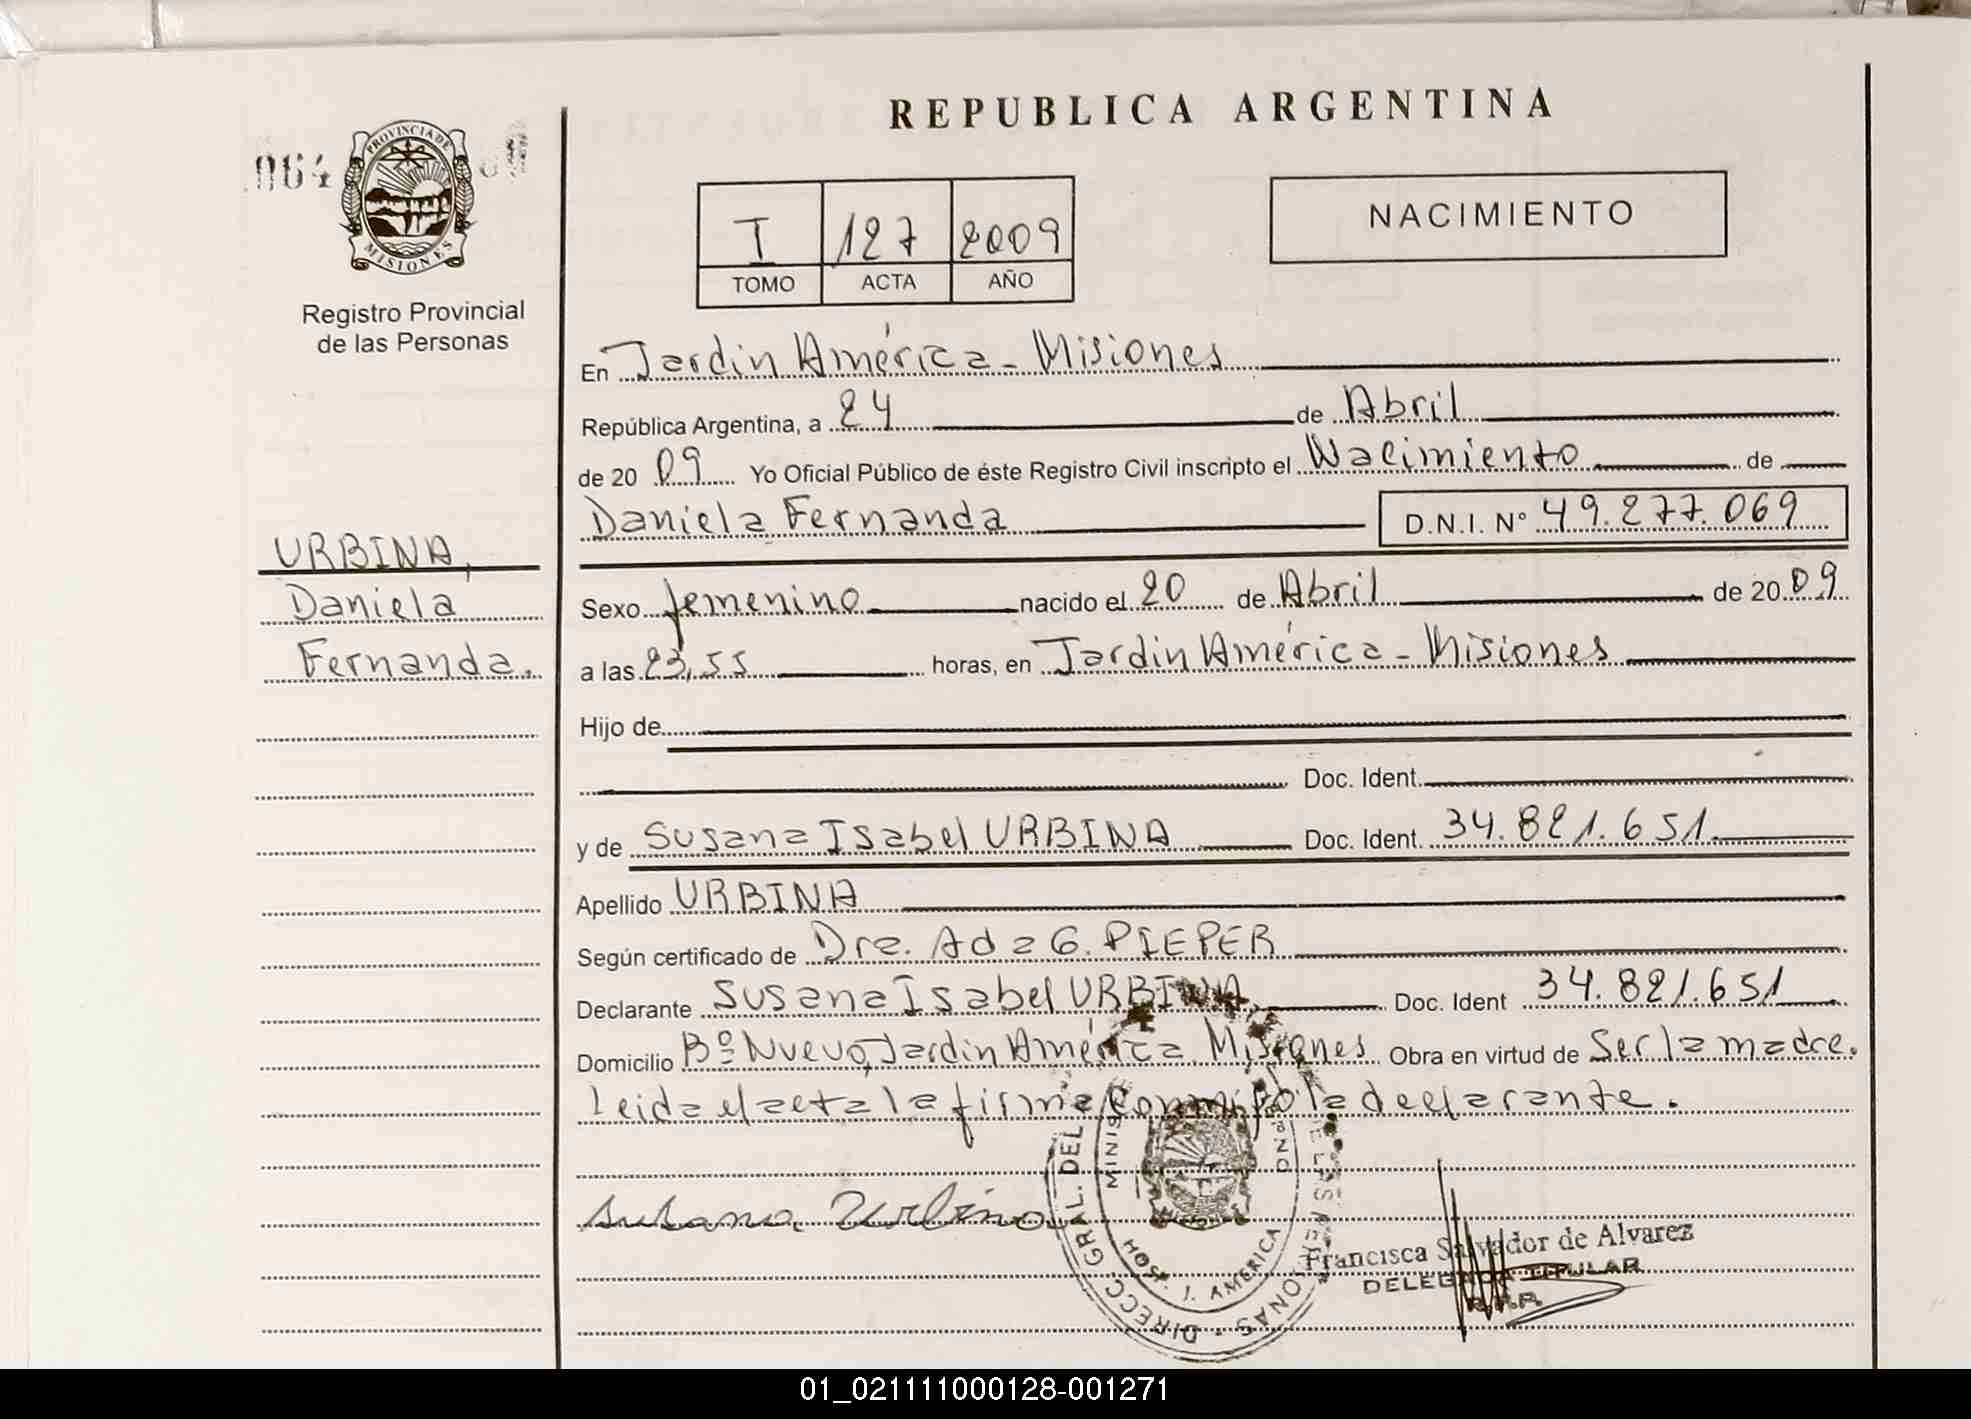 REPUBLICA ARGENTINA
064
PROVINCIA DE
MISIONES
Registro Provincial
de las Personas
I 127 2009
TOMO ACTA AÑO
NACIMIENTO
En Jardin América - Misiones
República Argentina, a 24 de Abril
de 20 09 Yo Oficial Público de éste Registro Civil inscripto el Nacimiento de
Daniela Fernanda D.N.I. Nº 49.277.069
URBINA,
Daniela
Fernanda.
Sexo femenino nacido el 20 de Abril de 20 09
a las 23,55 horas, en Jardin América - Misiones
Hijo de
Doc. Ident.
y de Susana Isabel URBINA Doc. Ident. 34.821.651
Apellido URBINA
Según certificado de Dra. Ada G. PIEPER
Declarante Susana Isabel URBINA Doc. Ident 34.821.651
Domicilio Bº Nuevo, Jardin América Misiones Obra en virtud de Ser la madre.
Leida el acta la firma conmigo la declarante.
Susana Urbina
DIRECC. GRAL. DEL
LAS PERSONAS
J. AMERICA
Francisca Salvador de Alvarez
DELEGADA TITULAR
R.P.P.
01_021111000128-001271